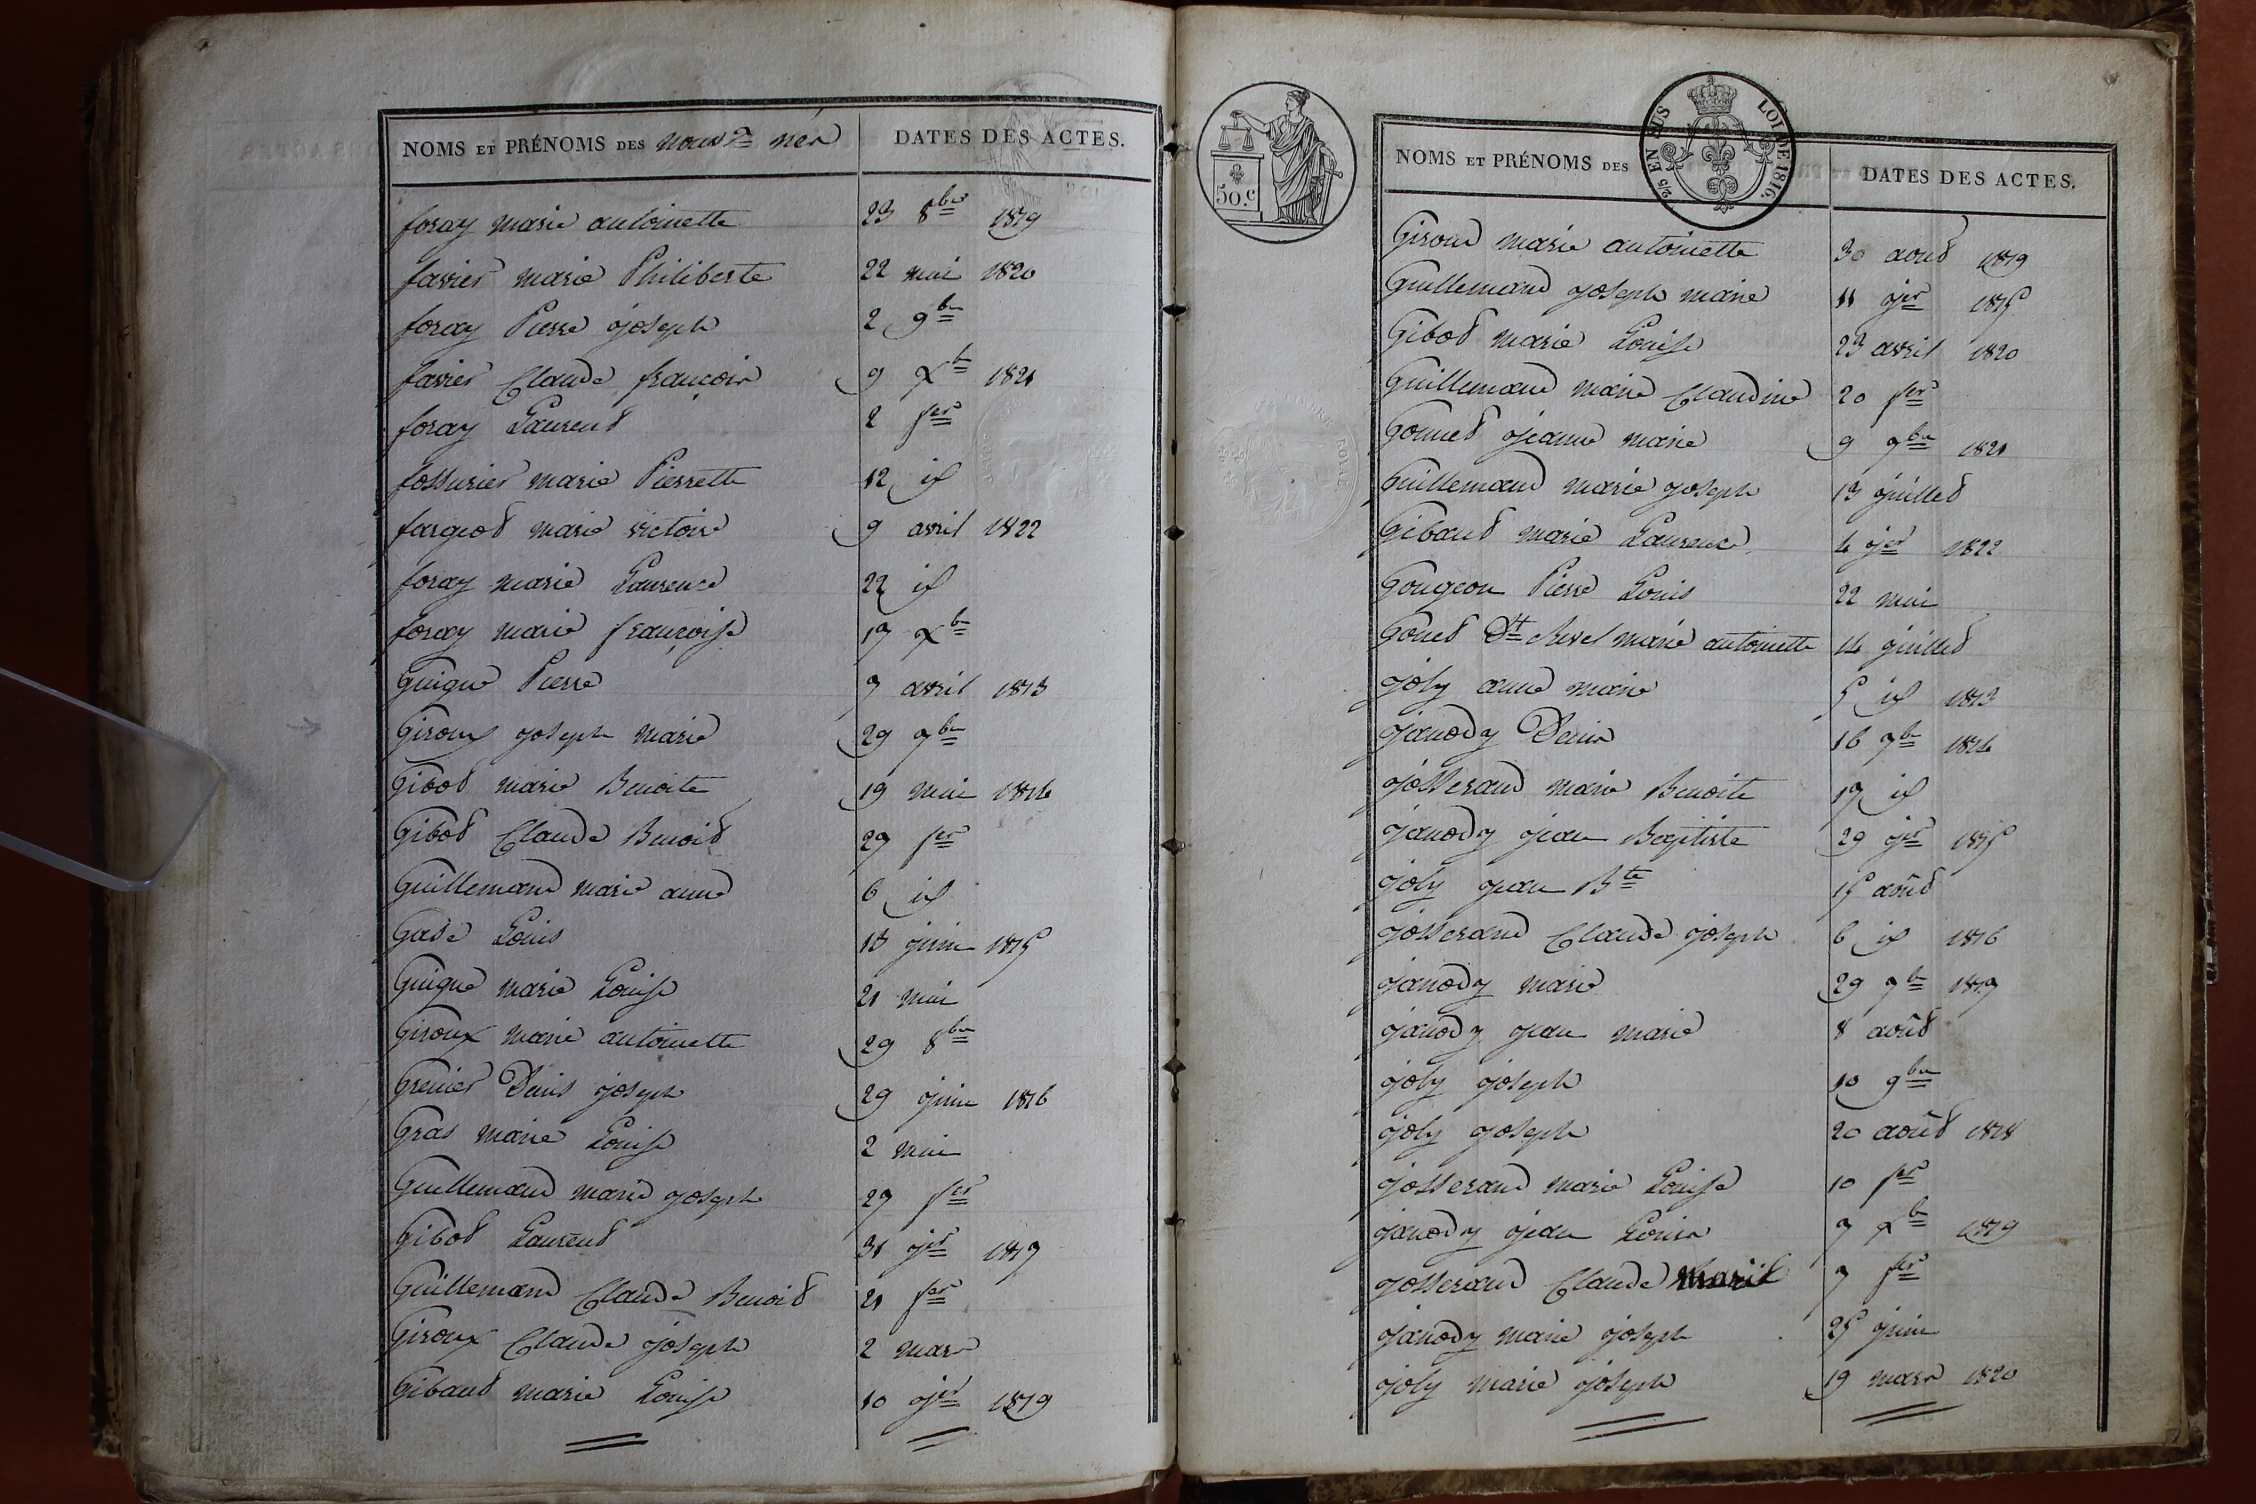 NOMS ET PRÉNOMS DES nouv.x nés DATES DES ACTES.
foray marie antoinette 23 8bre 1819
favier marie Philiberte 22 mai 1820
foray Pierre joseph 2 9bre
favier Claude françois 9 Xbre 1821
foray Laurent 2 fer
fossurier marie Pierrette 12 id
fargeot marie victoire 9 avril 1822
foray marie Laurence 22 id
foray marie françoise 17 Xbre
Guigue Pierre 7 avril 1813
Giroux joseph marie 29 7bre
Gibot marie Benoite 19 mai 1814
Gibot Claude Benoit 27 fer
Guillemaud marie anne 6 id
Louis 13 juin 1815
Guigue marie Louise 21 mai
Giroux marie antoinette 29 8bre
Grenier Denis joseph 29 juin 1816
Gras marie Louise 2 mai
Guillemaud marie joseph 27 fer
Gibot Laurent 31 jer 1817
Guillemaud Claude Benoit 21 fer
Giroux Claude joseph 2 mars
Gibaud marie Louise 10 jer 1819
50.c
2/5 EN SUS
LOI DE 1816.
NOMS ET PRÉNOMS DES DATES DES ACTES.
Giroud marie antoinette 30 aout 1819
Guillemaud joseph marie 11 jer 1815
Gibot marie Louise 23 avril 1820
Guillemaud marie Claudine 20 fer
Gonnet jeanne marie 9 7bre 1821
Guillemaud marie joseph 13 juillet
Gibaud marie Laurence 4 jer 1822
Gougeon Pierre Louis 22 mai
Gonet Dt marie antoinette 14 juillet
joly anne marie 5 id 1813
janody Denis 16 7bre 1814
josserand marie Benoite 17 id
janody jean Baptiste 29 jer 1815
joly jean Bte 15 août
josserand Claude joseph 6 id 1816
janody marie 29 7bre 1817
janody jean marie 8 août
joly joseph 10 9bre
joly joseph 20 août 1818
josserand marie Louise 10 fer
janody jean Louis 7 Xbre 1819
josserand Claude marie 7 fer
janody marie joseph 25 juin
joly marie joseph 19 mars 1820